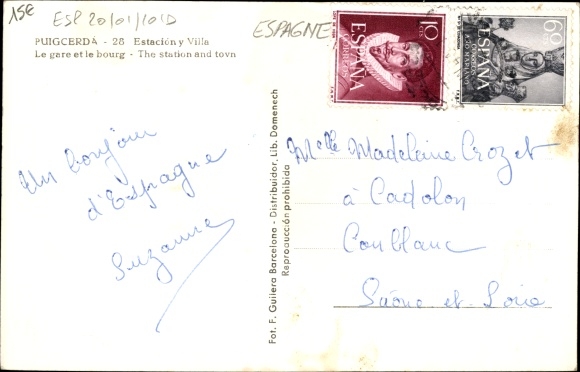 15€
ESP 20/01/101D
ESPAGNE
PUIGCERDÁ - 28 Estación y Villa
Le gare et le bourg - The station and tovn
10
CTS
CORREOS
ESPAÑA
60
CTS
CORREOS
AÑO MARIANO
ESPAÑA
Un bonjour
d'Espagne
Suzanne
Fot. F. Guilera Barcelona - Distribuidor, Lib. Domenech
Reproducción prohibida
Melle Madeleine Crozet
à Cadolon
Conblanc
Saône et Loire